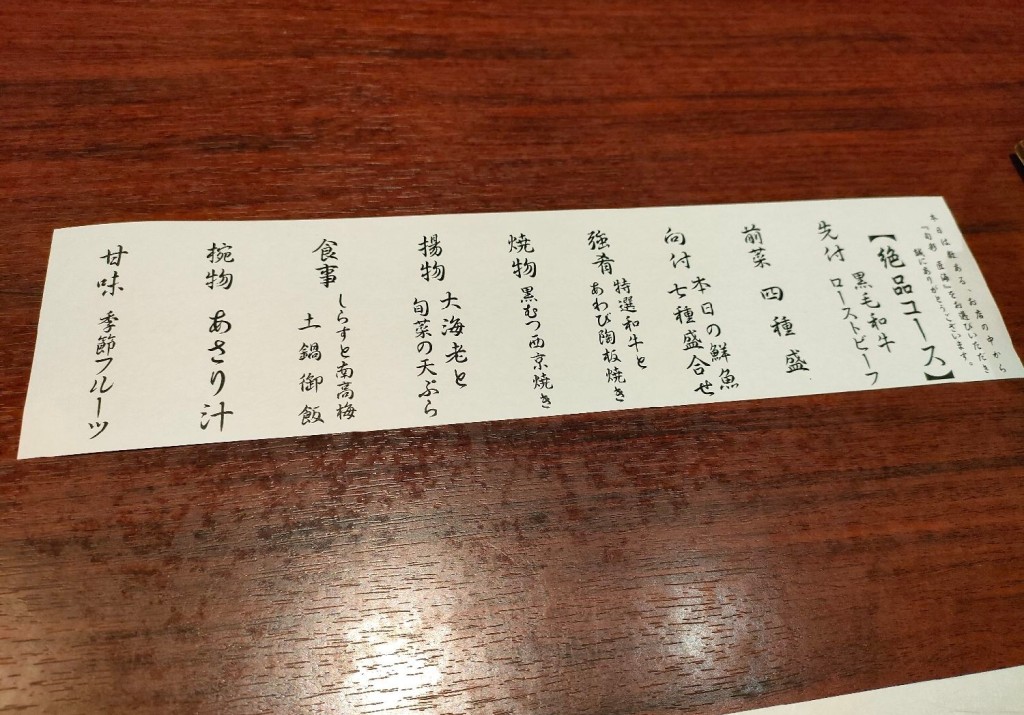 本日は数ある、お店の中から
お選びいただき
誠にありがとうございます。
【絶品コース】
先付 黒毛和牛
ローストビーフ
前菜 四種盛
向付 本日の鮮魚
七種盛合せ
強肴 特選和牛と
あわび陶板焼き
焼物 黒むつ西京焼き
揚物 大海老と
旬菜の天ぷら
食事 しらすと南高梅
土鍋御飯
椀物 あさり汁
甘味 季節フルーツ